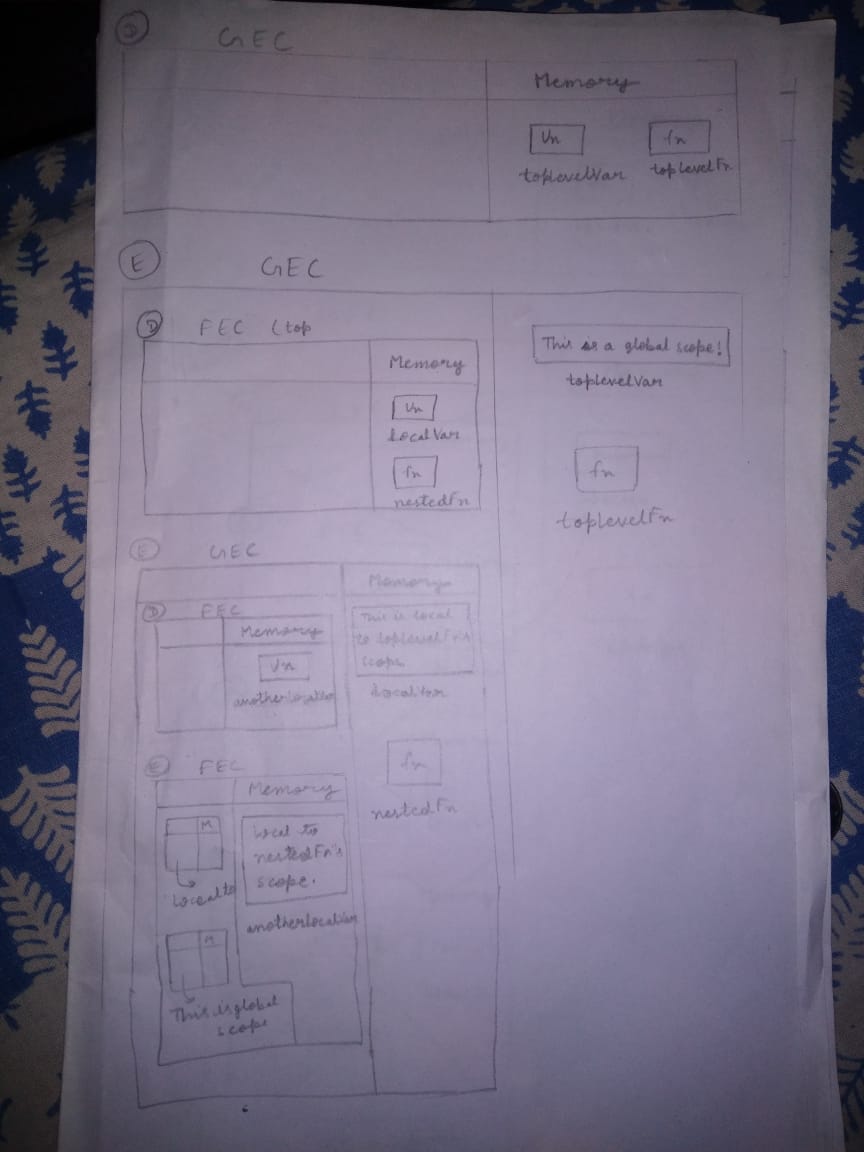 D GEC
Memory
Un fn
toplevelVar toplevelFn
E GEC
D FEC (top
Memory
Un
localVar
fn
nestedFn
This is a global scope!
toplevelVar
fn
toplevelFn
E GEC
Memory
D FEC
Memory
Un
anotherlocalVar
This is local
to toplevelFn's
scope
localVar
fn
nestedFn
E FEC
Memory
M
Local to
nestedFn's
scope.
Local to
anotherlocalVar
M
This is global
scope